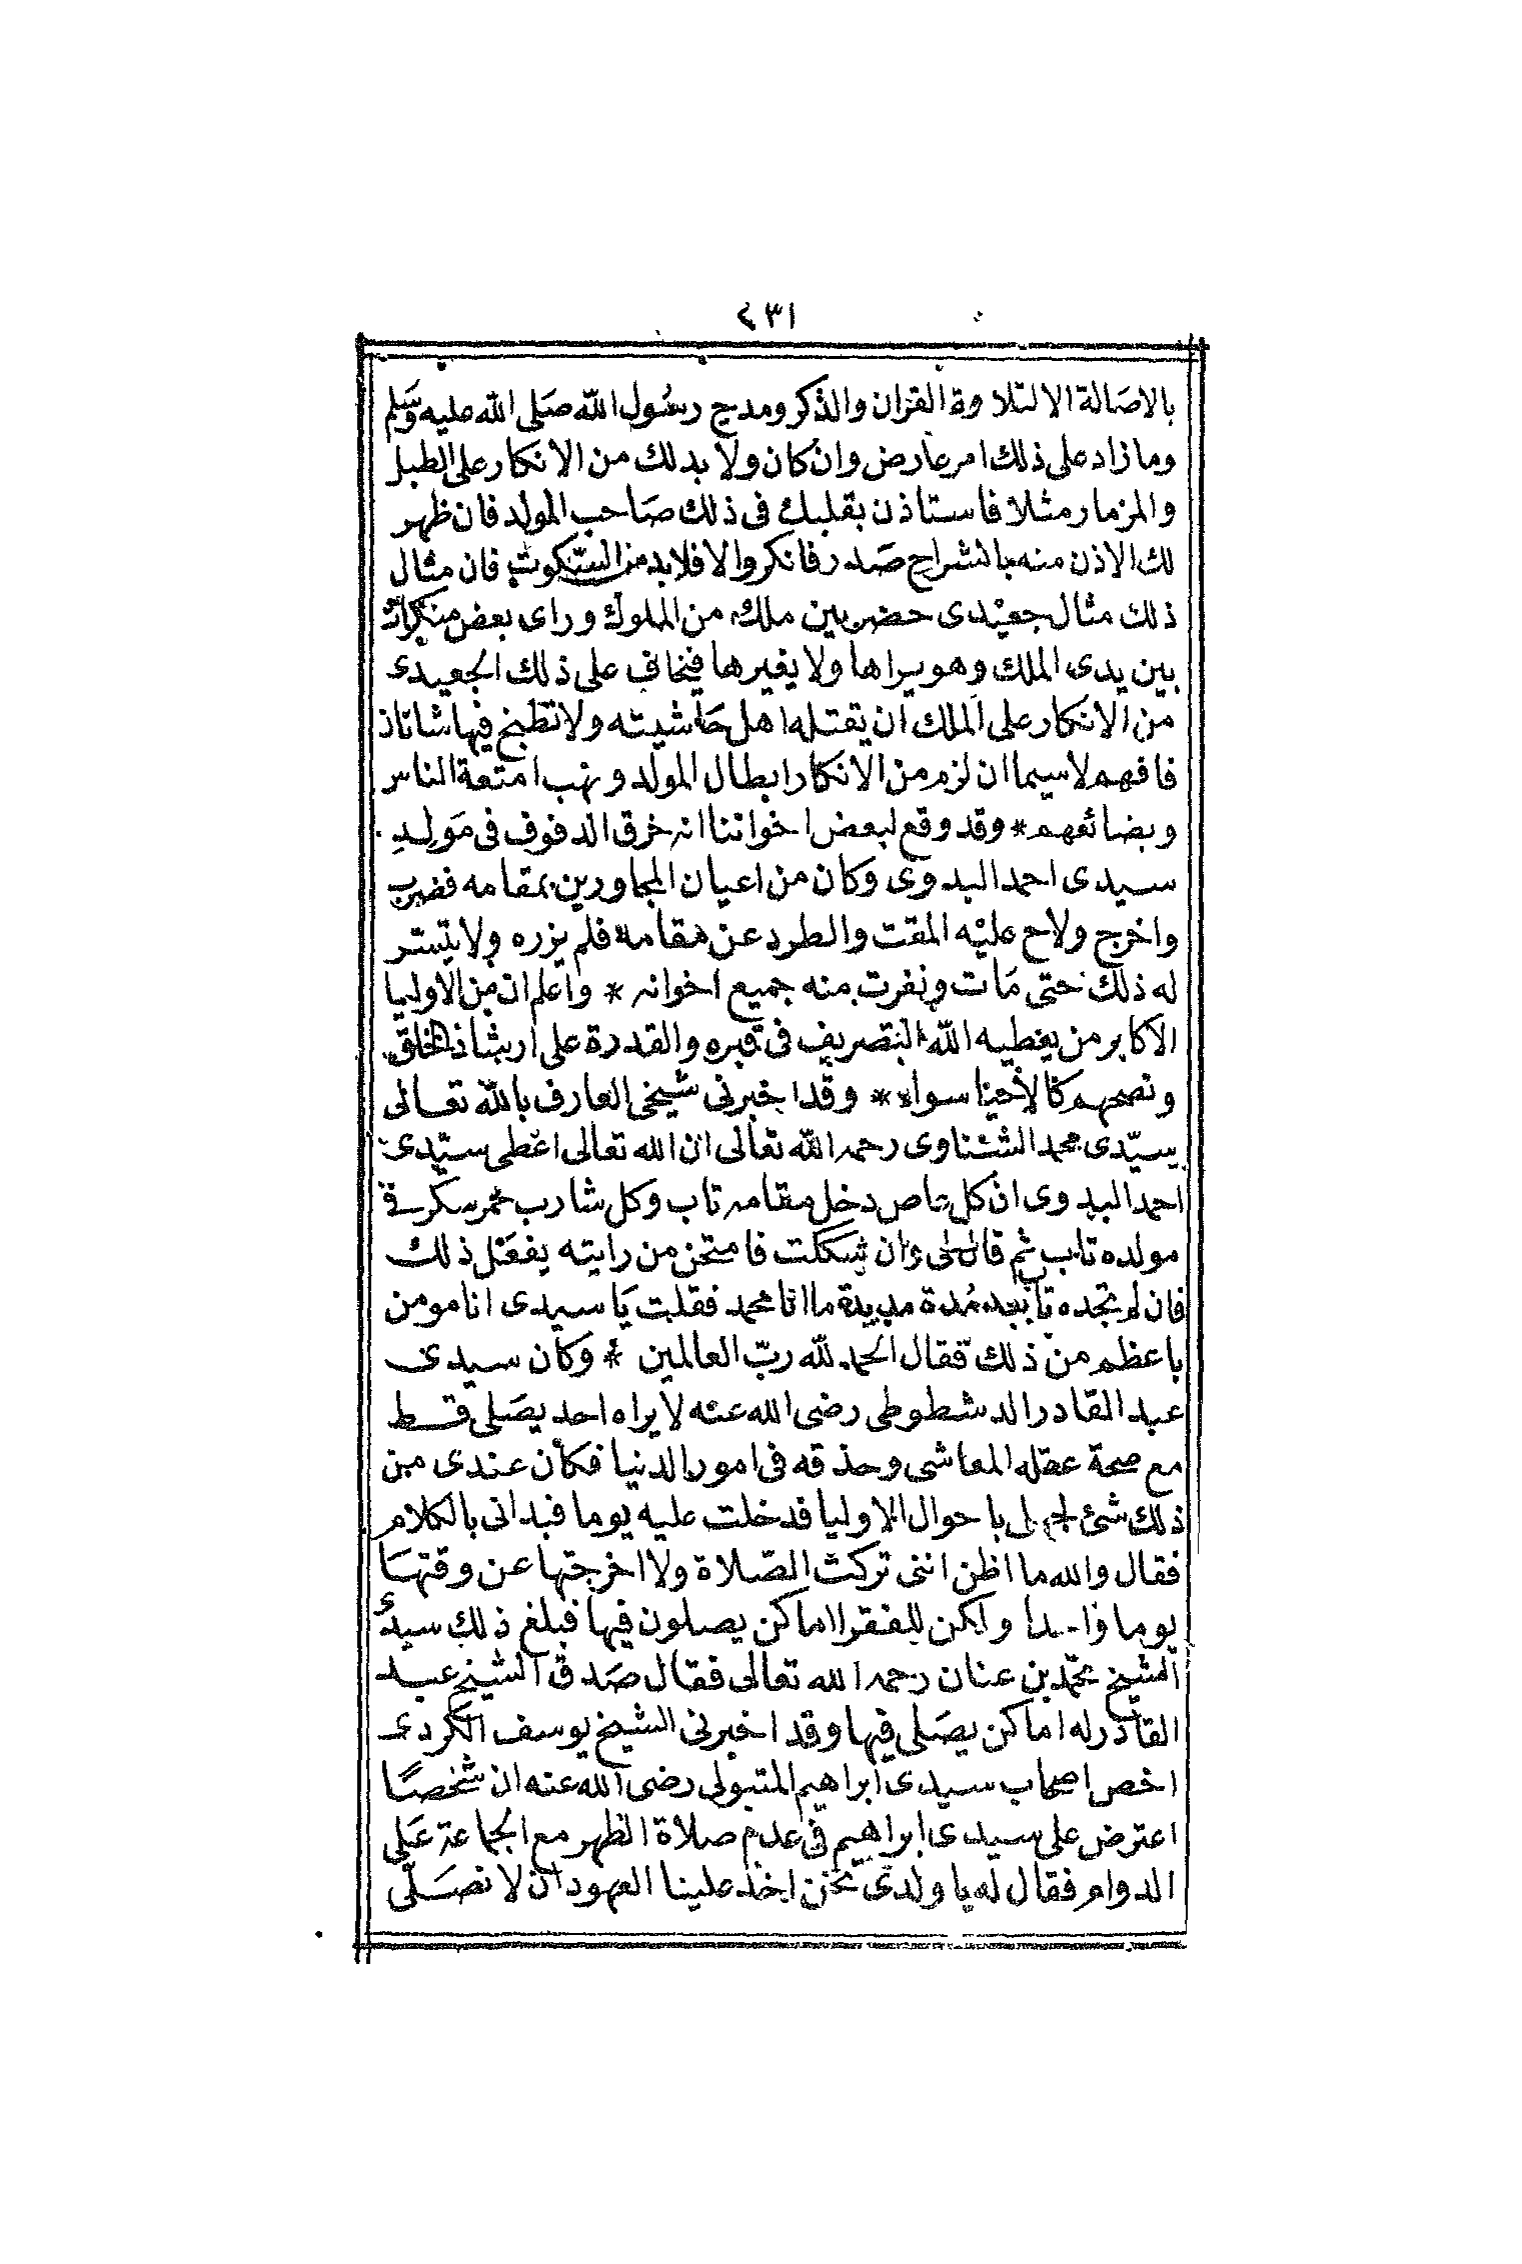 ٤٣١
بالاصالة الا لتلاوة القران والذكر ومدح رسول الله صلى الله عليه وسلم
وما زاد على ذلك امر عارض وان كان ولا بد لك من الانكار على الطبل
والمزمار مثلا فاستاذن بقلبك في ذلك صاحب المولد فان ظهر
لك الاذن منه بانشراح صدر فانكر والا فلابد من السكوت فان مثال
ذلك مثال جعيدى حضر بين ملك من الملوك وراى بعض منكرات
بين يدى الملك وهو يراها ولا يغيرها فيخاف على ذلك الجعيدى
من الانكار على الملك ان يقتله اهل حاشيته ولا تطبخ فيها شاتان
فافهم لاسيما ان لزم من الانكار ابطال المولد ونهب امتعة الناس
وبضائعهم * وقد وقع لبعض اخواننا انه خرق الدفوف في مولد
سيدى احمد البدوى وكان من اعيان المجاورين بمقامه فضرب
واخرج ولاح عليه المقت والطرد عن مقامه فلم يزره ولا يتسر
له ذلك حتى مات ونفرت منه جميع اخوانه * واعلم ان من الاوليا
الاكابر من يعطيه الله التصريف في قبره والقدرة على ارشاد الخلق
ونصحهم كالاحيا سواء * وقد اخبرنى شيخى العارف بالله تعالى
سيدى محمد الشناوى رحمه الله تعالى ان الله تعالى اعطى سيدى
احمد البدوى ان كل عاص دخل مقامه تاب وكل شارب خمر سكر في
مولده تاب ثم قال لى وان شككت فامتحن من رايته يفعل ذلك
فان لم تجده تاب بعد مدة مديدة ما انا محمد فقلت يا سيدى انا مومن
باعظم من ذلك فقال الحمد لله رب العالمين * وكان سيدى
عبد القادر الدشطوطى رضى الله عنه لا يراه احد يصلى قط
مع صحة عقله المعاشى وحذقه في امور الدنيا فكان عندى من
ذلك شئ لجهلى باحوال الاوليا فدخلت عليه يوما فبدانى بالكلام
فقال والله ما اظن اننى تركت الصلاة ولا اخرجتها عن وقتها
يوما واحدا ولكن للفقرا اماكن يصلون فيها فبلغ ذلك سيدى
الشيخ محمد بن عنان رحمه الله تعالى فقال صدق الشيخ عبد
القادر له اماكن يصلى فيها وقد اخبرنى الشيخ يوسف الكردى
اخص اصحاب سيدى ابراهيم المتبولى رضى الله عنه ان شخصا
اعترض على سيدى ابراهيم في عدم صلاة الظهر مع الجماعة على
الدوام فقال له يا ولدى نحن اخذ علينا العهود ان لا نصلى